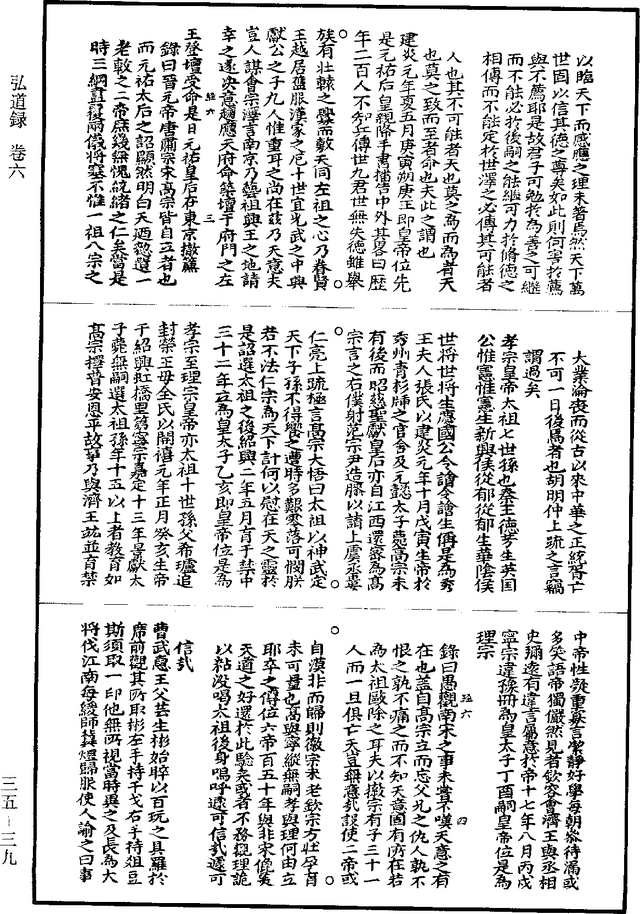 弘道录 卷六
以臨天下而感應之理未著焉然天下萬
世固以信其德之尊矣如此則何害於薦
與不薦耶是故君子可勉於為善之可繼
而不能必於後嗣之能繼可力於脩德之
相傳而不能定於世澤之必傳其可能者
人也其不可能者天也莫之為而為者天
也莫之致而至者命也夫此之謂也
建炎元年夏五月庚寅朔康王即皇帝位先
是元祐后皇親降手書播告中外其畧曰歷
年二百人不知兵傳世九君世無失德雖舉
族有北轅之釁而敷天同左袒之心乃眷賢
王越居藩服漢家之厄十世宜光武之中興
獻公之子九人惟重耳之尚在茲乃天意夫
豈人謀會宗澤言南京乃藝祖興王之地請
幸之遂決意趨應天府命築壇于府門之左
王登壇受命是日元祐皇后在東京撤簾
錄曰晉元帝唐肅宗宋高宗皆自立者也
而元祐太后之詔顯然明白天迺憖遺一
老敷之二帝庶幾無愧統緒之仁矣當是
時三綱兩儀將塞不惟一祖八宗之
大業淪喪而從古以來中華之正統胥亡
不可一日後焉者也胡明仲上疏之言竊
謂過矣
孝宗皇帝太祖七世孫也秦王德芳生英国
公惟憲惟憲生新興侯從郁從郁生華陰侯
世將世將生慶國公令譮令譮生偁是為秀
王夫人張氏以建炎元年十月戊寅生帝於
秀州青杉之官舍及元懿太子薨高宗未
有後而昭慈聖獻皇后亦自江西還密為高
宗言之右僕射范宗尹造膝以請上虞丞婁
仁亮上疏極言高宗大悟曰太祖以神武定
天下子孫不得饗之遭時多艱零落可憫朕
若不法仁宗為天下計何以慰在天之靈於
是詔選太祖之後紹興二年五月育于禁中
三十二年立為皇太子乙亥即皇帝位是為
孝宗至理宗皇帝亦太祖十世孫父希瓐追
封榮王母全氏以開禧元年正月癸亥生帝
于紹興虹橋里第寧宗嘉定十三年景獻太
子薨無嗣選太祖孫年十五以上者教育如
高宗擇普安恩平故事乃與濟王竑並育禁
中帝性凝重寡言潔靜好學每朝參待漏或
多笑語帝獨儼然見者歛容會濟王與丞相
史彌遠有違言屬意於帝十七年八月丙戌
寧宗違豫冊為皇太子丁酉嗣皇帝位是為
理宗
錄曰愚觀南宋之事未嘗不嘆天意之有
在也蓋自高宗立而忘父兄之仇人孰不
恨之孰不痛之而不知天意固有所在若
為太祖歐除之耳夫以徽宗有子三十一
人而一旦俱亡天豈無意哉設使二帝或
自漠非而歸則徽宗未老欽宗方壯孕育
未可量也高與寧縱無嗣孝與理何由立
耶卒之傳位六帝百五十年與非宋侔矣
天道之好還於此驗矣或者不務觀理詭
以粘沒喝太祖後身嗚呼遽可信哉遽可
信哉
曹武惠王父芸生彬始晬以百玩之具羅於
席前觀其所取彬左手持干戈右手持俎豆
斯須取一印他無所視當時異之及長為大
將伐江南每緩師冀煜歸服使人諭之曰事
三五-三九